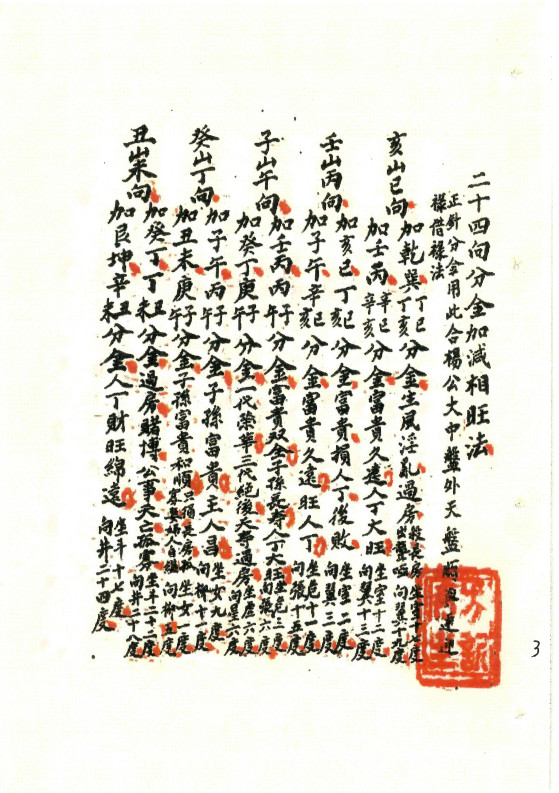 二十四向分金加減相旺法
正針分金用此合楊公大中盤外天盤
祿借祿法
亥山巳向
加乾巽丁巳丁亥分金主風淫亂過房向翼十九度
加壬丙辛巳辛亥分金富貴久遠人丁大旺坐室十一度向翼十二度
壬山丙向
加亥巳丁巳丁亥分金富貴損人丁後敗坐室一度向翼三度
加子午辛巳辛亥分金富貴久遠旺人丁坐危十一度向張十五度
子山午向
加壬丙丙子丙午分金富貴双全子孫長壽人丁大旺坐危三度向張六度
加癸丁庚子庚午分金一代榮華三代絕後夭壽過房坐虛六度向星六度
癸山丁向
加子午丙子丙午分金子孫富貴主人昌坐女九度向柳十六度
加丑未庚子庚午分金子孫富貴和順坐女一度向柳五度
丑山未向
加癸丁丁丑丁未分金過房賭博公事夭亡孤寡坐牛二度向井廿八度
加艮坤辛丑辛未分金人丁財旺綿遠坐斗十七度向井二十四度
3